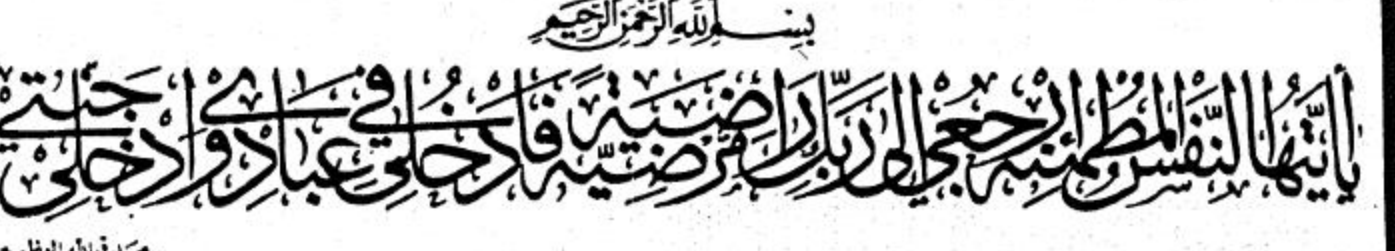 بِسْمِ اللهِ الرَّحْمٰنِ الرَّحِيمِ
يَا أَيَّتُهَا النَّفْسُ الْمُطْمَئِنَّةُ ارْجِعِي إِلَى رَبِّكِ رَاضِيَةً مَرْضِيَّةً فَادْخُلِي فِي عِبَادِي وَادْخُلِي جَنَّتِي
صدق الله العظيم